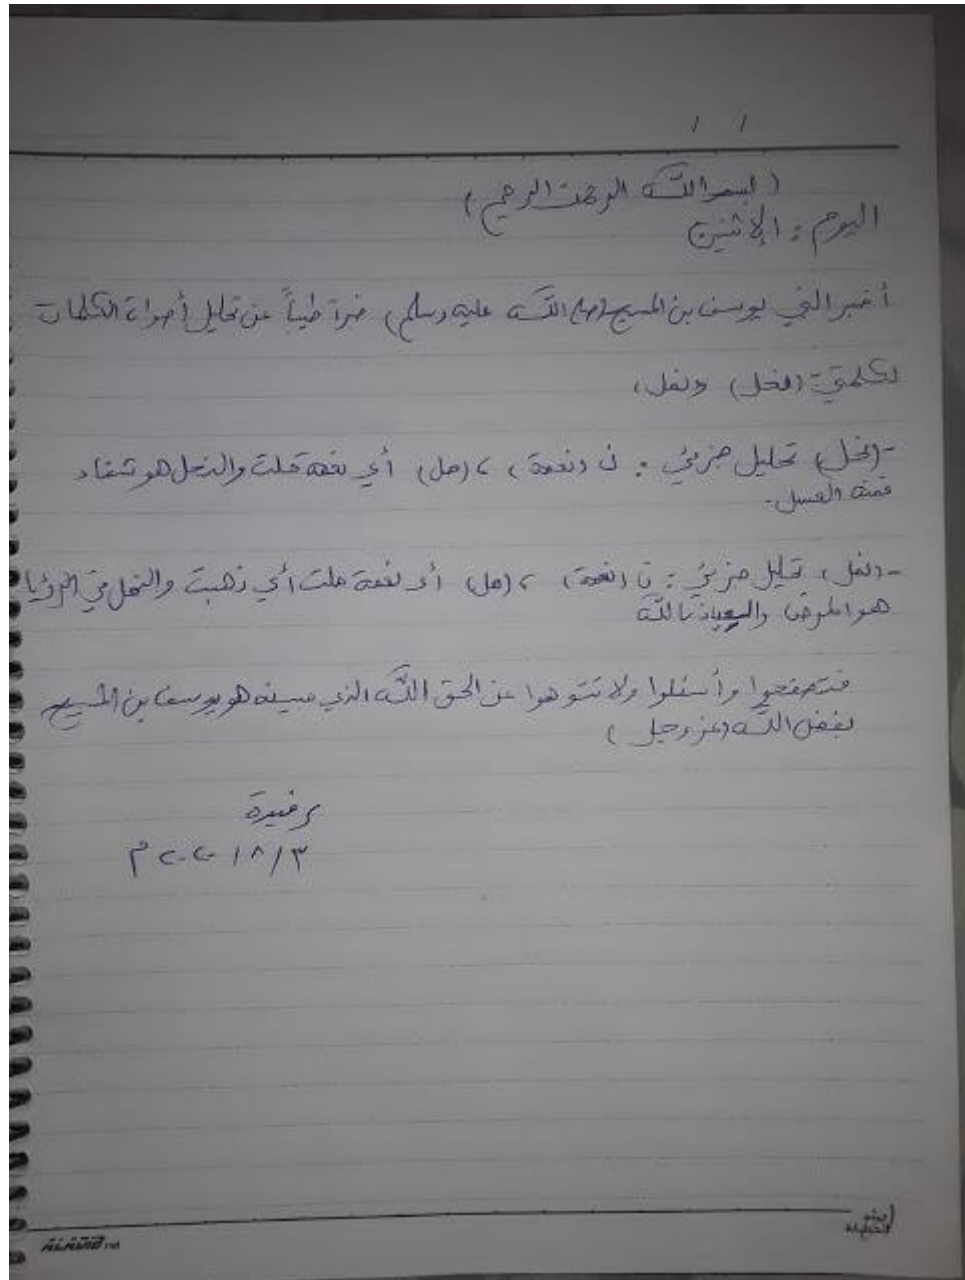 / /
(بسم الله الرحمن الرحيم)
اليوم : الإثنين
أخبر النبي يوسف بن المسيح (صلى الله عليه وسلم) خبراً طيباً عن تحليل أصوات الكلمات
لكلمتي : (نحل) ونمل،
-(نحل) تحليل جزئي : ن (نعمة) ، (حل) أي نعمة حلت والنحل هو شفاء
فمنه العسل.
-(نمل) تحليل جزئي : ن (نعمة) ، (مل) أي نعمة ملت أي ذهبت والنمل في الرؤيا
هو المرض والعياذ بالله
ولا تتوهوا عن الحق الذي هو يوسف بن المسيح
بفضل الله (عز وجل)
رفيدة
٣/٨/٢٠٢٠ م